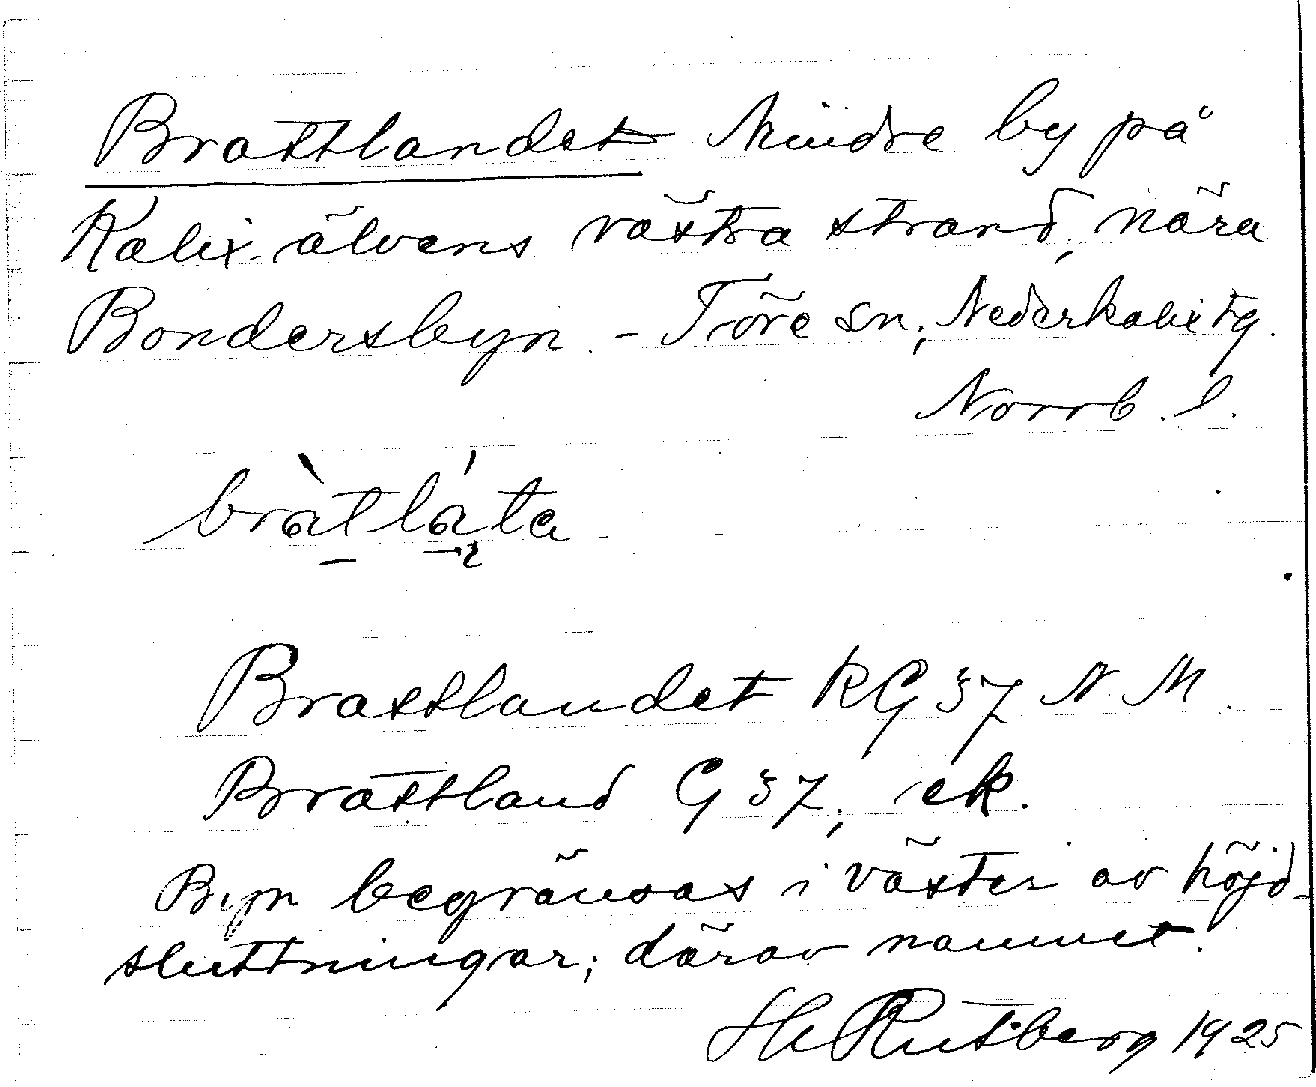 Brattlandet Mindre by på
Kalix älvens västra strand, nära
Bondersbyn - Töre sn; Nederkalix tg.
Norrb. l.
bràtláta
Brattlandet RG 37 N. M.
Brattland G 37, ek.
Byn begränsas i väster av höjd-
sluttningar; därav namnet.
He Rutberg 1925